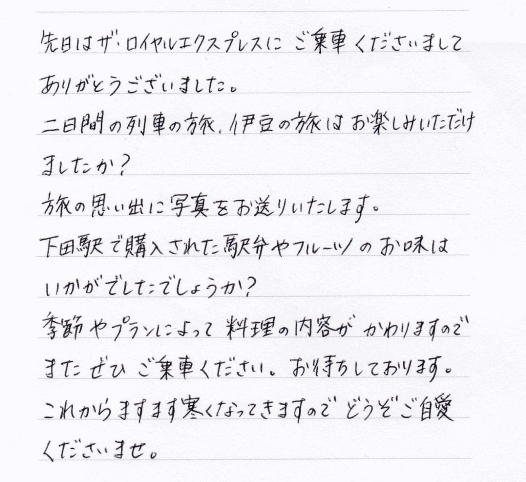 先日はザ・ロイヤルエクスプレスに ご乗車くださいまして
ありがとうございました。
二日間の列車の旅、伊豆の旅は お楽しみいただけ
ましたか?
旅の思い出に写真をお送りいたします。
下田駅で購入された駅弁やフルーツの お味は
いかがでしたでしょうか?
季節やプランによって 料理の内容が かわりますので
またぜひ ご乗車ください。お待ちしております。
これからますます寒くなってきますので どうぞご自愛
くださいませ。